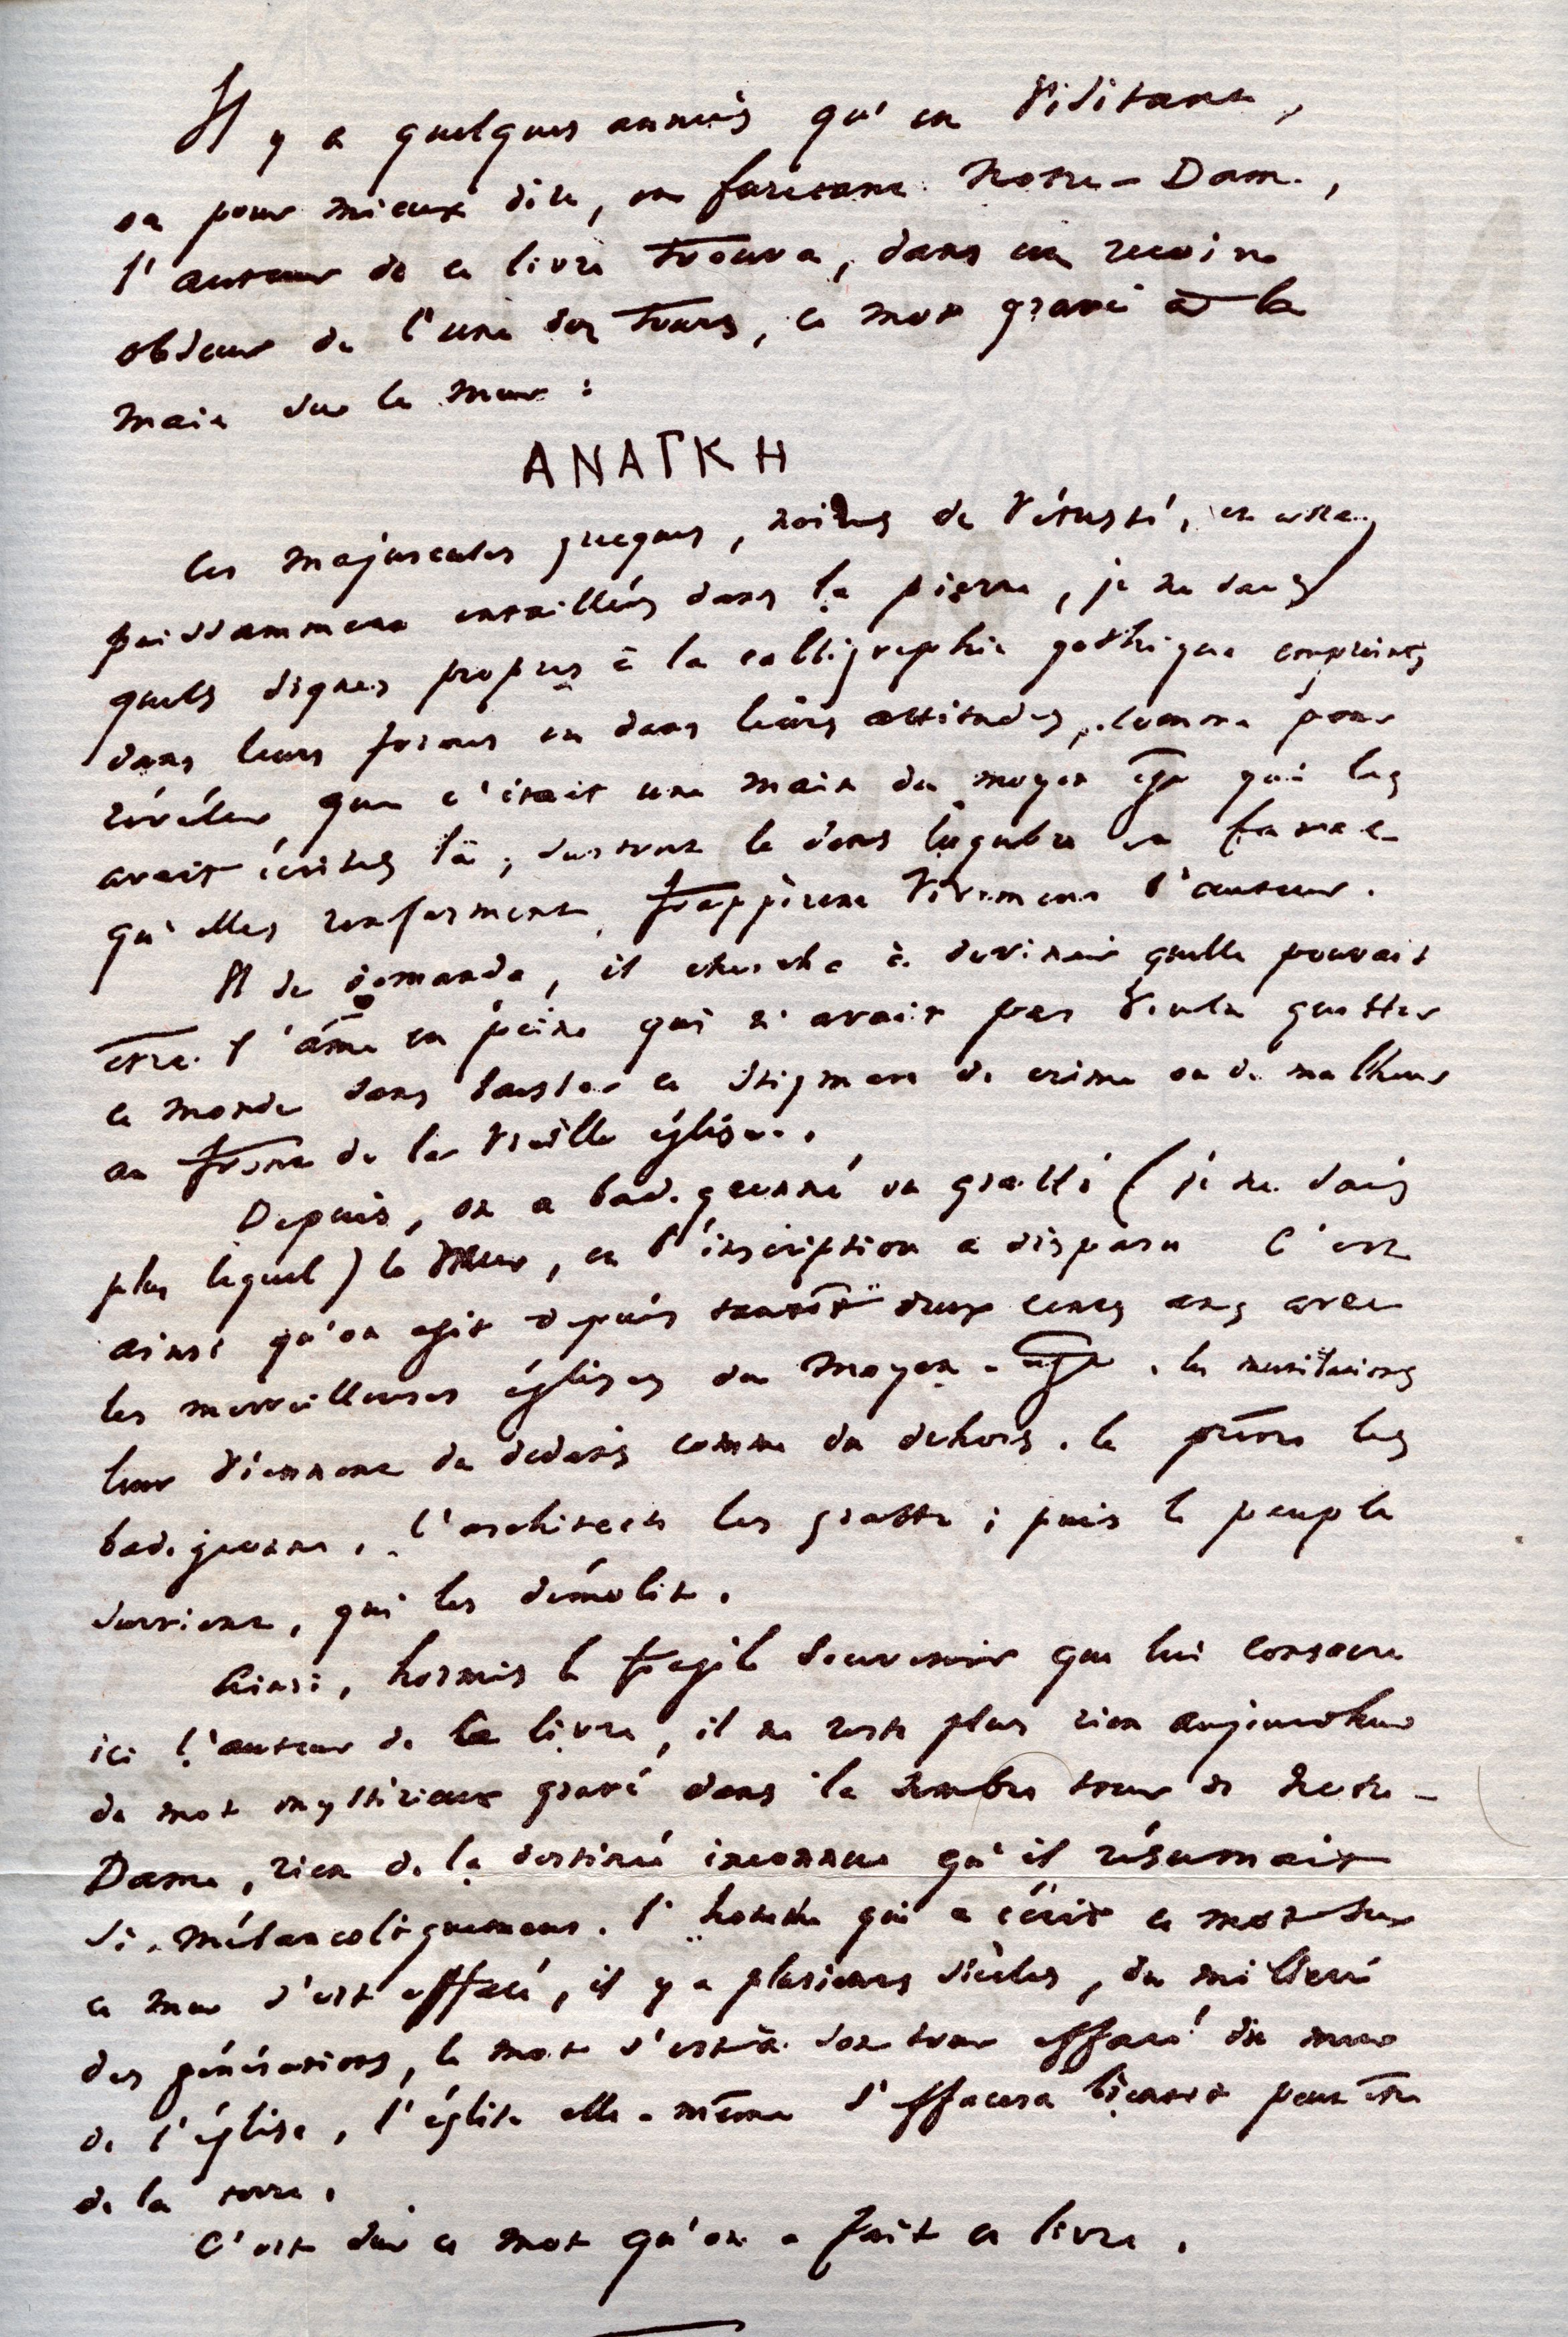 Il y a quelques années qu'en visitant,
ou pour mieux dire, en furetant Notre-Dame,
l'auteur de ce livre trouva, dans un recoin
obscur de l'une des tours, ce mot gravé à la
main sur le mur :
ΑΝΑΓΚΗ
Ces majuscules grecques, noires de vétusté, et assez
puissamment entaillées dans la pierre, je ne sais
quels signes propres à la calligraphie gothique empreints
dans leurs formes et dans leurs attitudes, comme pour
révéler que c'était une main du moyen âge qui les
avait écrites là, surtout le sens lugubre et fatal
qu'elles renferment, frappèrent vivement l'auteur.
Il se demanda, il chercha à deviner quelle pouvait
être l'âme en peine qui n'avait pas voulu quitter
ce monde sans laisser ce stigmate de crime ou de malheur
au front de la vieille église.
Depuis, on a badigeonné ou gratté (je ne sais
plus lequel) le mur, et l'inscription a disparu C'est
ainsi qu'on agit depuis tantôt deux cents ans avec
les merveilleuses églises du moyen-âge. les mutilations
leur viennent du dedans comme du dehors. le prêtre les
badigeonne, l'architecte les gratte ; puis le peuple
survient, qui les démolit.
Ainsi, hormis le fragile souvenir que lui consacre
ici l'auteur de ce livre, il ne reste plus rien aujourd'hui
du mot mystérieux gravé dans la sombre tour de Notre-
Dame, rien de la destinée inconnue qu'il résumait
si mélancoliquement. l'homme qui a écrit ce mot sur
ce mur s'est effacé, il y a plusieurs siècles, du milieu
des générations, le mot s'est à son tour effacé du mur
de l'église, l'église elle-même s'effacera bientôt peut être
de la terre.
C'est sur ce mot qu'on a fait ce livre.